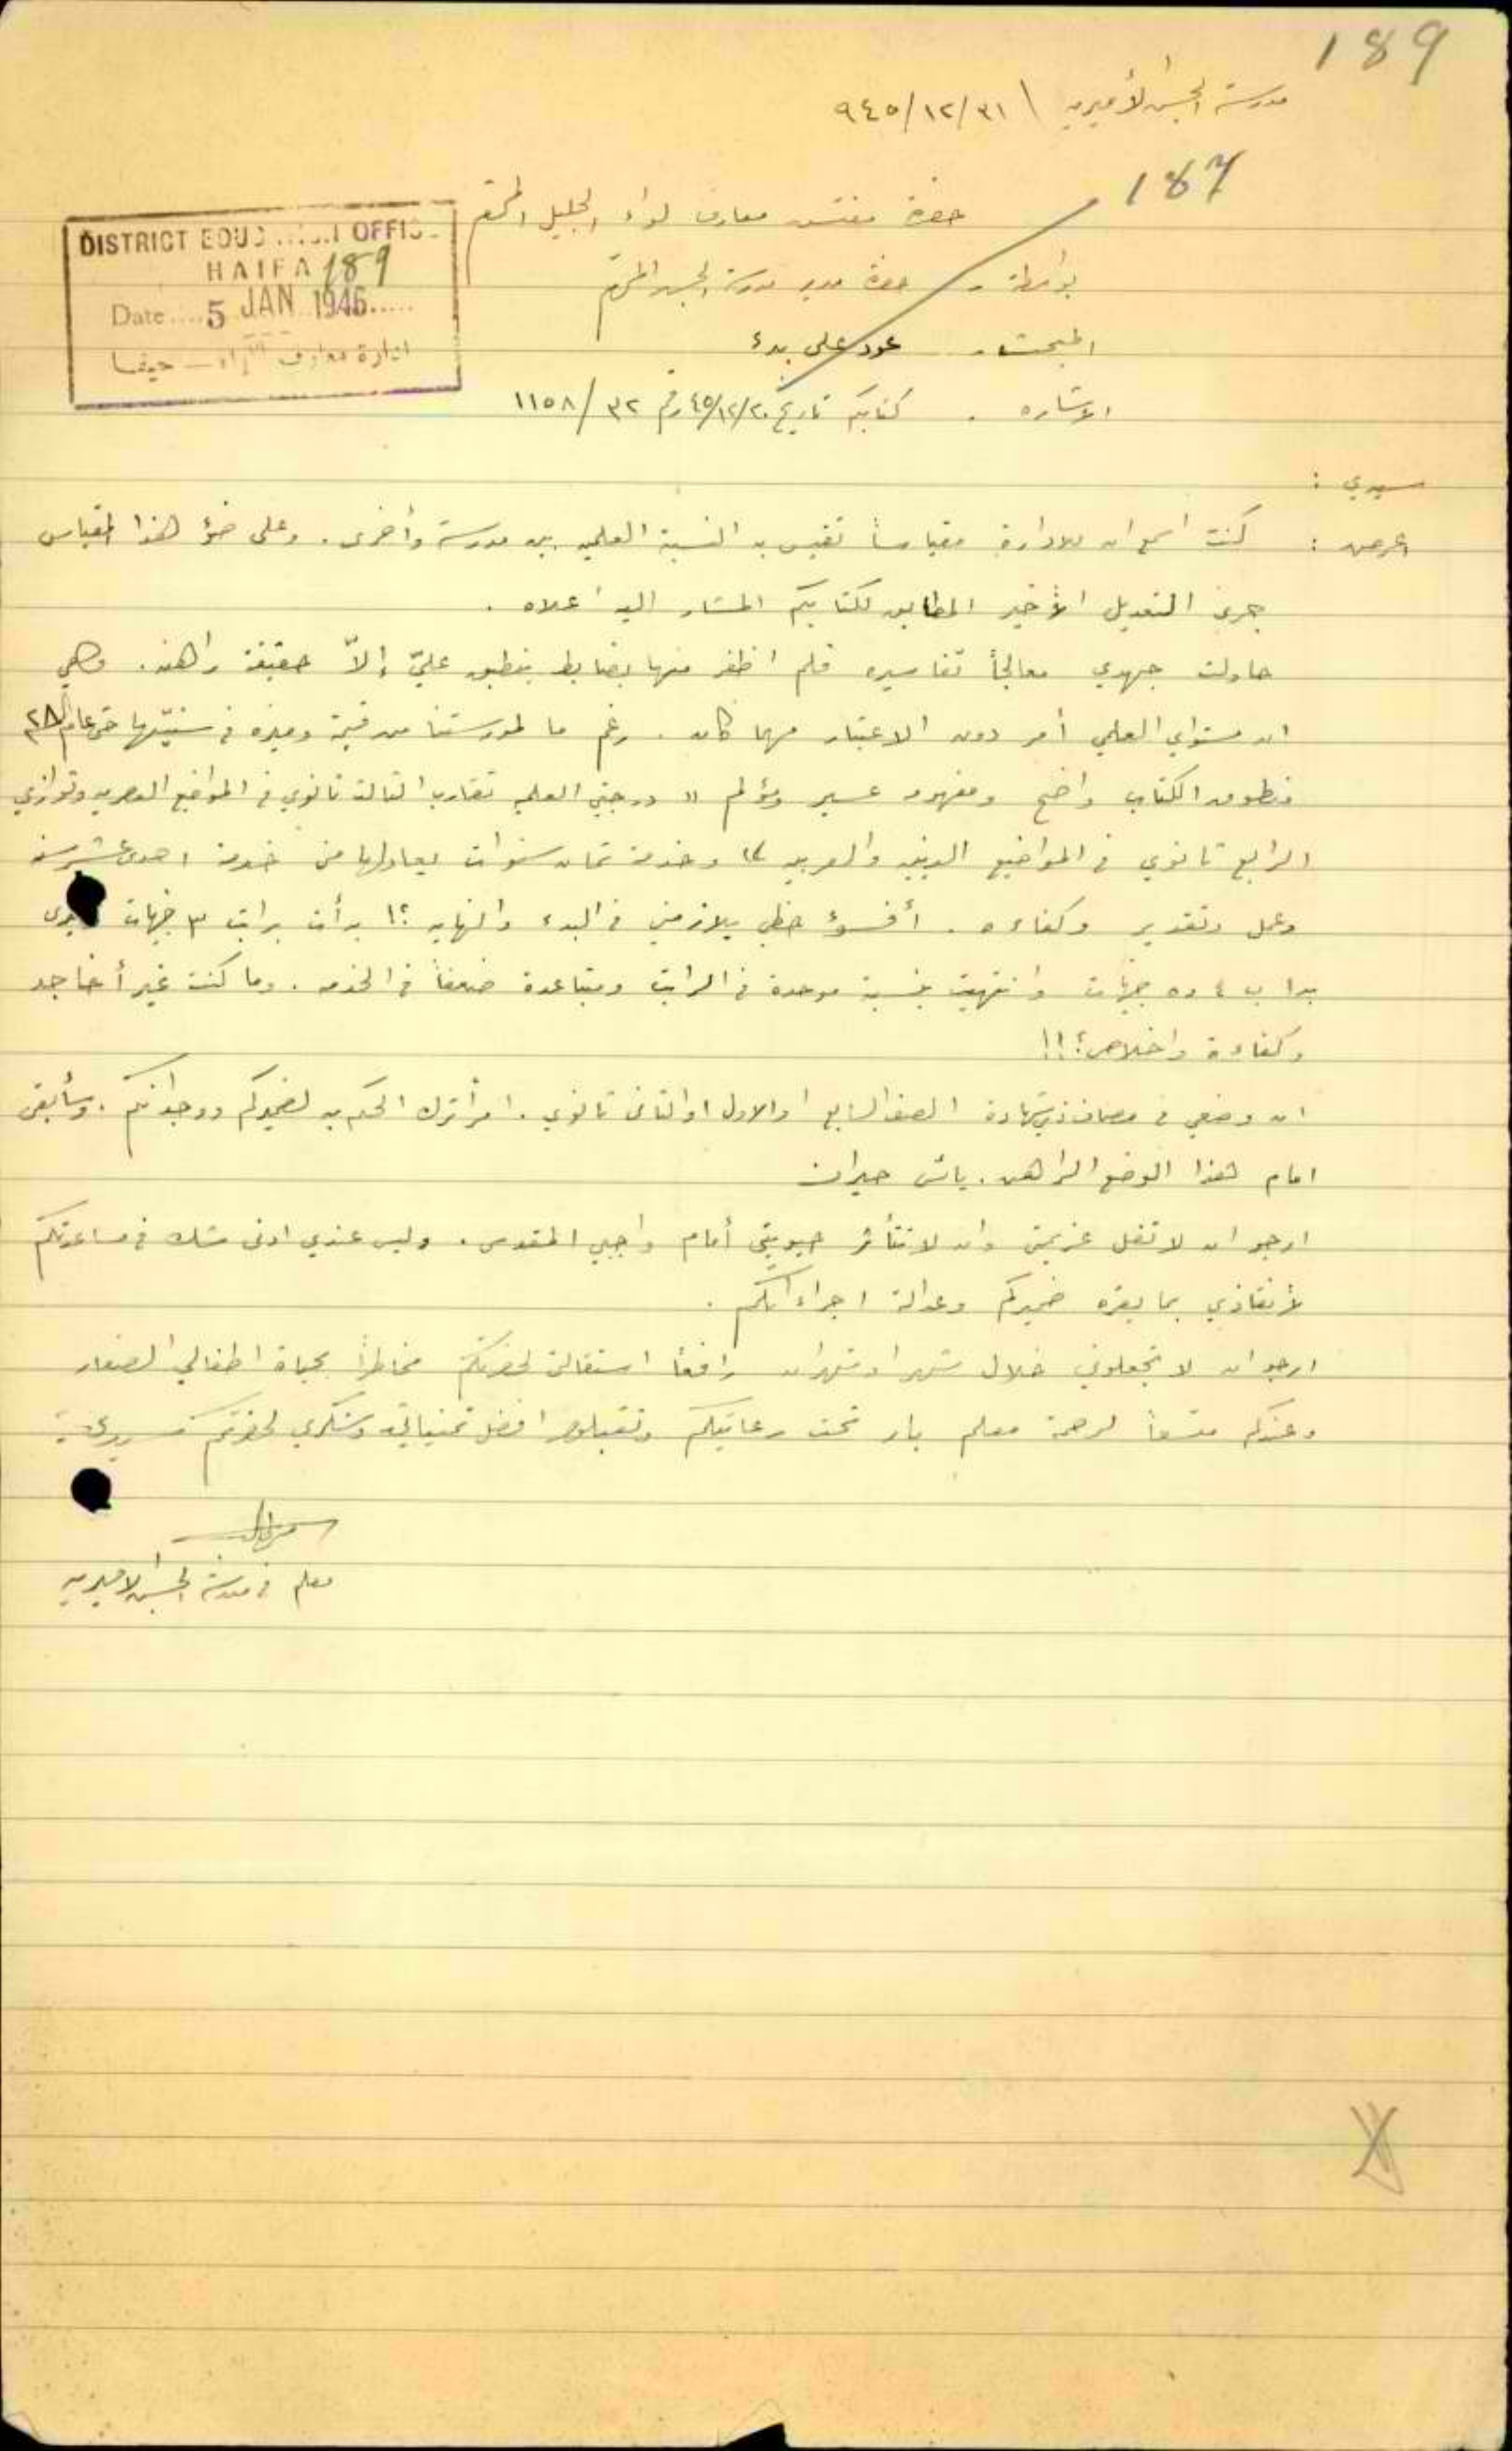 189
مدرسة الجش الأميرية / ٣١/١٢/٩٤٥
187
حضرة مفتش معارف لواء الجليل المحترم
DISTRICT EDUC OFFIC
HAIFA 189
Date.... 5 JAN 1946.....
ادارة معارف اللواء — حيفا
بواسطة - حضرة مدير مدرسة الجش المحترم
المبحث - عود على بدء
الاشاره . كتابكم تاريخ ٢٠/١٢/٤٥ رقم ٣٢/١١٥٨
سيدي :
اعرض : كنت اسمع ان للادارة مقياساً تقيس به النسبة العلميه بين مدرسة وأخرى . وعلى ضوء هذا المقياس
جرى التعديل الأخير المطابق لكتابكم المشار اليه اعلاه .
حاولت جهدي معالجاً تفاسيره فلم اظفر منها بضابط ينطبق عليّ إلاّ حقيقة راهنه . وهي
ان مستواي العلمي أمر دون الاعتبار مهما كان . رغم ما لمدرستنا من قيمة وميزه في سنيّها حتى عام
فنطوق الكتاب واضح ومفهومه عسير ومؤلم " درجتي العلميه تقارب الثالث ثانوي في المواضيع العصريه وتوازي
الرابع ثانوي في المواضيع الدينيه والعربيه " وخدمة ثمان سنوات يعادلها من خدمة احدى عشر سنة
وعمل وتقدير وكفاءه . أفسوء حظي يلازمني في البدء والنهايه ؟! بدأت براتب ٣ جنيهات وغيري
بدا ب ٤ و ٥ جنيهات وانتهيت بنسبة موحدة في الراتب ومتباعدة ضعفاً في الخدمه . وما كنت غير أخا جد
وكفاءة واخلاص ؟!!!
ان وضعي في مصاف ذي شهادة الصف السابع او الاول او الثاني ثانوي . امر أترك الحكم به لضميركم ووجدانكم . وسأبقى
امام هذا الوضع الراهن . يائس حيران
ارجو ان لا تفل عزيمتي وان لا تتأثر حيويتي أمام واجبي المقدس . وليس عندي ادنى شك في مساعدتكم
لأنقاذي بما يقره ضميركم وعدالة اجراءاتكم .
ارجو ان لا تجعلوني خلال شهر او شهران رافعاً استقالتي لحضرتكم مخاطراً بحياة اطفالي الصغار
وعندكم متسعاً لرحمة معلم بار تحت رعايتكم وتقبلوا افضل تمنياتي وشكري لحضرتكم سيدي
معلم في مدرسة الجش الاميريه